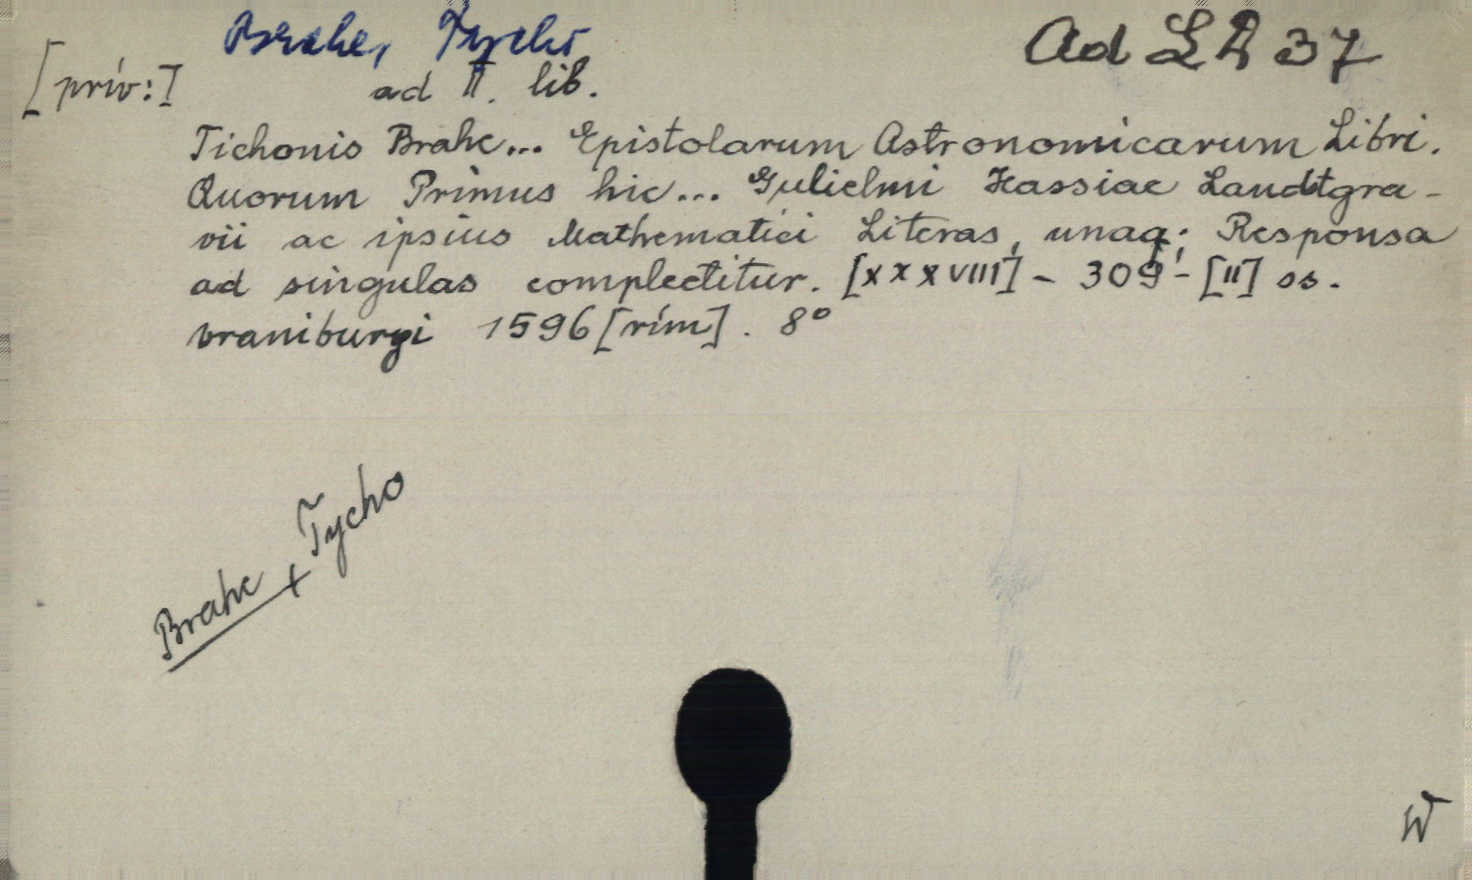 Brahe, Tycho
Ad LA 37
[priv:]
ad II. lib.
Tichonis Brahe... Epistolarum Astronomicarum Libri.
Quorum Primus hic... Gulielmi Hassiae Landtgra-
vii ac ipsius Mathematici Literas, unaq; Responsa
ad singulas complectitur. [XXXVIII] - 309 - [II] os.
Vraniburgi 1596 [rím]. 8°
Brahe + Tycho
W